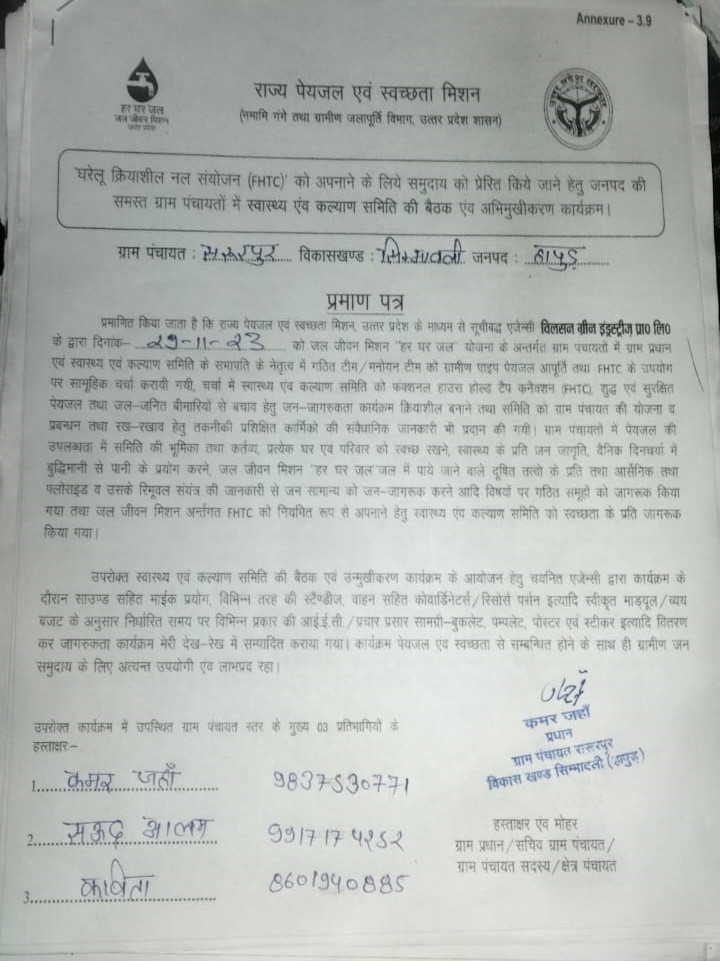 Annexure – 3.9
हर घर जल
जल जीवन मिशन
राज्य पेयजल एवं स्वच्छता मिशन
(नमामि गंगे तथा ग्रामीण जलापूर्ति विभाग, उत्तर प्रदेश शासन)
उत्तर प्रदेश सरकार
'घरेलू क्रियाशील नल संयोजन (FHTC)' को अपनाने के लिये समुदाय को प्रेरित किये जाने हेतु जनपद की
समस्त ग्राम पंचायतों में स्वास्थ्य एंव कल्याण समिति की बैठक एंव अभिमुखीकरण कार्यक्रम।
ग्राम पंचायत : विकासखण्ड : जनपद : हापुड़
प्रमाण पत्र
प्रमाणित किया जाता है कि राज्य पेयजल एवं स्वच्छता मिशन, उत्तर प्रदेश के माध्यम से सूचीबद्ध एजेन्सी विलसन ग्रीन इंडस्ट्रीज़ प्रा0 लि0
के द्वारा दिनांक– 29-11-23 को जल जीवन मिशन "हर घर जल" योजना के अन्तर्गत ग्राम पंचायतों में ग्राम प्रधान
एवं स्वास्थ्य एवं कल्याण समिति के सभापति के नेतृत्व में गठित टीम/मनोयन टीम को ग्रामीण पाइप पेयजल आपूर्ति तथा FHTC के उपयोग
पर सामूहिक चर्चा करायी गयी, चर्चा में स्वास्थ्य एंव कल्याण समिति को फंक्शनल हाउस होल्ड टैप कनेक्शन (FHTC), शुद्ध एवं सुरक्षित
पेयजल तथा जल-जनित बीमारियों से बचाव हेतु जन-जागरुकता कार्यक्रम क्रियाशील बनाने तथा समिति को ग्राम पंचायत की योजना व
प्रबन्धन तथा रख-रखाव हेतु तकनीकी प्रशिक्षित कार्मिको की संवैधानिक जानकारी भी प्रदान की गयी। ग्राम पंचायतों में पेयजल की
उपलब्धता में समिति की भूमिका तथा कर्तव्य, प्रत्येक घर एवं परिवार को स्वच्छ रखने, स्वास्थ्य के प्रति जन जागृति, दैनिक दिनचर्या में
बुद्धिमानी से पानी के प्रयोग करने, जल जीवन मिशन "हर घर जल जल में पाये जाने वाले दूषित तत्वो के प्रति तथा आर्सेनिक तथा
फ्लोराइड व उसके रिमूवल संयंत्र की जानकारी से जन सामान्य को जन-जागरूक करने आदि विषयों पर गठित समूहों को जागरूक किया
गया तथा जल जीवन मिशन अर्न्तगत FHTC को नियमित रूप से अपनाने हेतु स्वास्थ्य एंव कल्याण समिति को स्वच्छता के प्रति जागरूक
किया गया।
उपरोक्त स्वास्थ्य एवं कल्याण समिति की बैठक एवं उन्मुखीकरण कार्यक्रम के आयोजन हेतु चयनित एजेन्सी द्वारा कार्यक्रम के
दौरान साउण्ड सहित माईक प्रयोग, विभिन्न तरह की स्टैण्डीज, वाहन सहित कोवार्डिनेटर्स/रिसोर्स पर्सन इत्यादि स्वीकृत माड्यूल/व्यय
बजट के अनुसार निर्धारित समय पर विभिन्न प्रकार की आई.ई.सी./प्रचार प्रसार सामग्री-बुकलेट, पम्पलेट, पोस्टर एवं स्टीकर इत्यादि वितरण
कर जागरुकता कार्यक्रम मेरी देख-रेख में सम्पादित कराया गया। कार्यक्रम पेयजल एवं स्वच्छता से सम्बन्धित होने के साथ ही ग्रामीण जन
समुदाय के लिए अत्यन्त उपयोगी एंव लाभप्रद रहा।
कमर जहाँ
प्रधान
ग्राम पंचायत रारूरपुर
विकास खण्ड सिम्भावली (हापुड़)
उपरोक्त कार्यक्रम में उपस्थित ग्राम पंचायत स्तर के मुख्य 03 प्रतिभागियों के
हस्ताक्षर:-
1. कमर जहाँ 9837530771
2. सऊद आलम 9917174252
3. कविता 8601940885
हस्ताक्षर एंव मोहर
ग्राम प्रधान/सचिव ग्राम पंचायत/
ग्राम पंचायत सदस्य/क्षेत्र पंचायत